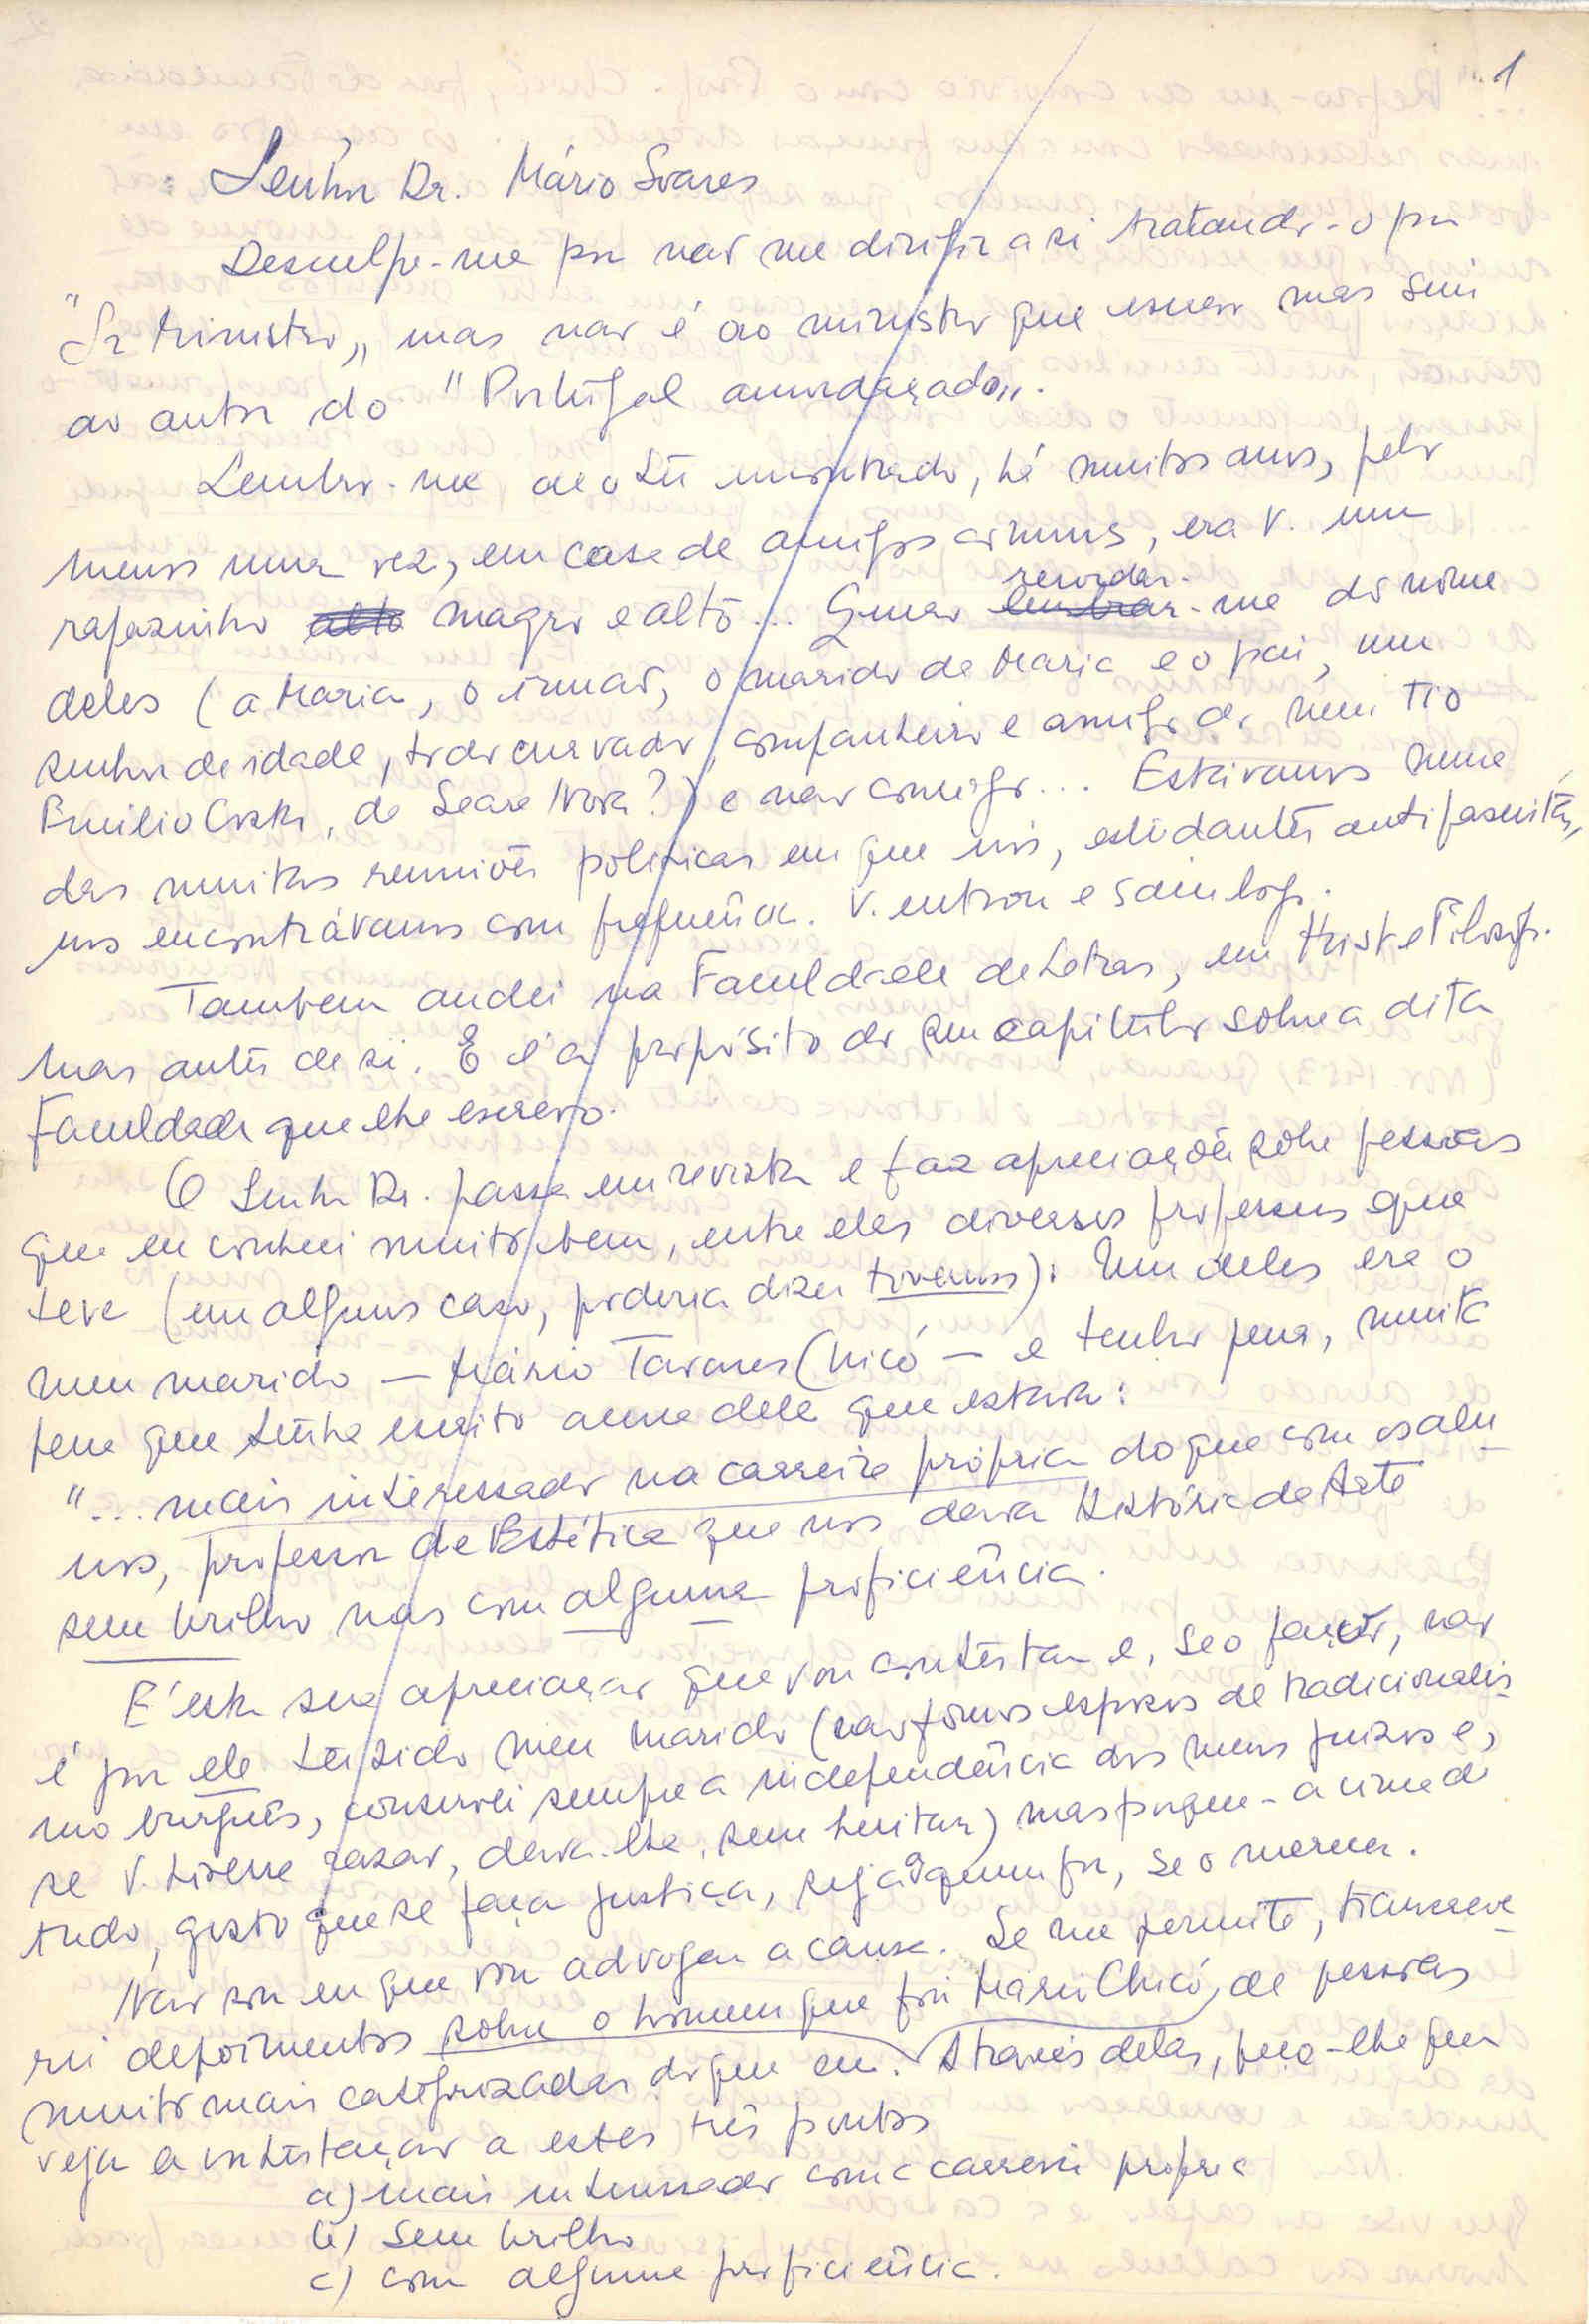 1
Senhor Dr. Mário Soares
Desculpe-me por não me dirigir a si tratando-o por
"Sr Ministro", mas não é ao ministro que escrevo mas sim
ao autor do "Portugal amordaçado".
Lembro-me de o ter encontrado, há muitos anos, pelo
menos uma vez, em casa de amigos comuns, era V. um
rapazinho alto magro e alto... Quero lembrar recordar-me do nome
deles (a Maria, o irmão, o marido da Maria e o pai, um
senhor de idade, todo curvado, companheiro e amigo do meu Tio
Emilio Costa, da Seara Nova?) e não consigo... Estávamos numa
das muitas reuniões politicas em que nós, estudantes antifascistas,
nos encontrávamos com frequência. V. entrou e saiu logo.
Tambem andei na Faculdade de Letras, em Hist e Filosof.
mas antes de si. E é a propósito do seu capitulo sobre a dita
Faculdade que lhe escrevo.
O Senhor Dr. passa em revista e faz apreciações sobre pessoas
que eu conheci muito bem, entre elas diversos professores que
teve (em alguns caso, poderia dizer tivemos): Um deles era o
meu marido — Mário Tavares Chicó — e tenho pena, muita
pena que tenha escrito acerca dele que estava:
"... mais interessado na carreira própria do que com os alu-
nos, professor de Estética que nos dava História da Arte
sem brilho mas com alguma proficiência.
É esta sua apreciação que vou contestar e, se o faço, não
é por ele ter sido meu marido (não fomos esposos de tradicionalis-
mo burguês, conservei sempre a independência dos meus juizos e,
se V. tivesse razão, dava-lha, sem hesitar) mas porque - acima de
tudo, gosto que se faça justiça, seja a quem for, se o merecer.
Não sou eu que vou advogar a causa. Se me permite, transcreve-
rei depoimentos sobre o homem que foi Mário Chicó, de pessoas
muito mais categorizadas do que eu. Através delas, peço-lhe que
veja a contestação a estes três pontos
a) mais interessado com a carreira própria
b) sem brilho
c) com alguma proficiência.